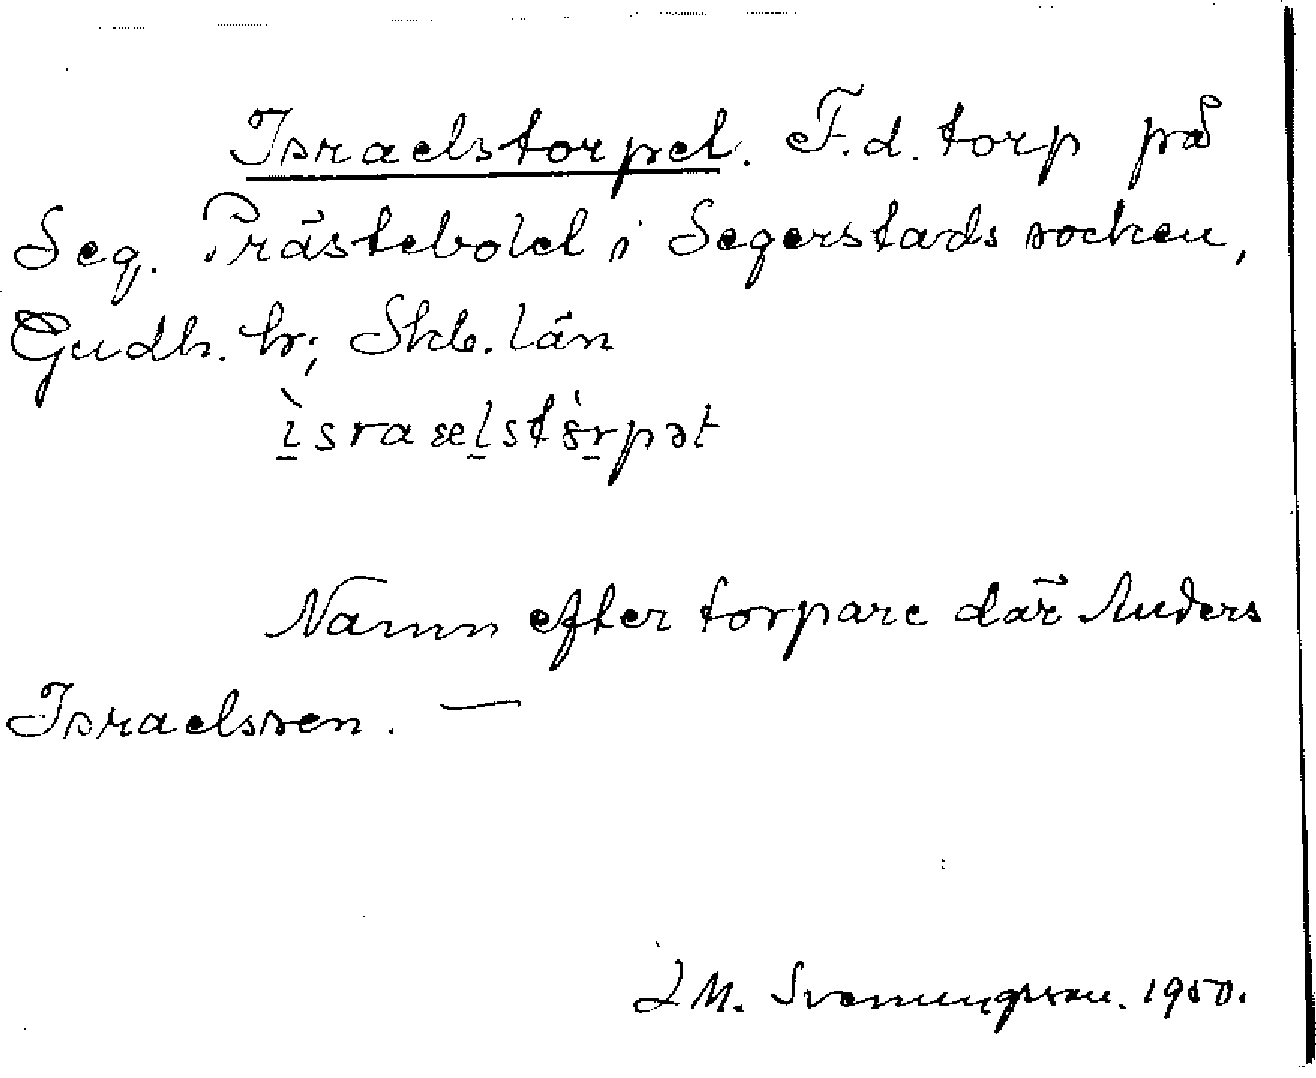 Israelstorpet. F.d. torp på
Seg. Prästebolet i Segerstads socken,
Gudh. hr; Skb. län
ìsraælstòrpət
Namn efter torpare där Anders
Israelsson. —
J M. Svenningsson. 1950.